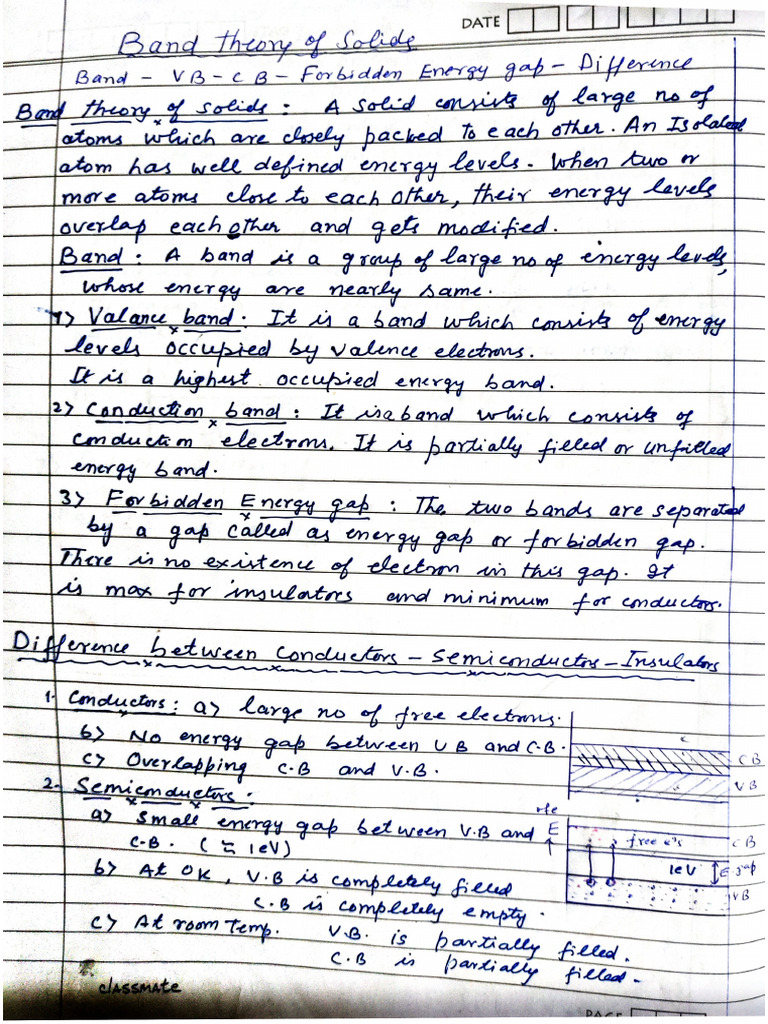 DATE
Band theory of Solids
Band - VB - CB - Forbidden Energy gap - Difference
Band theory of solids : A solid consists of large no of
atoms which are closely packed to each other. An Isolated
atom has well defined energy levels. When two or
more atoms close to each other, their energy levels
overlap each other and gets modified.
Band : A band is a group of large no of energy levels,
whose energy are nearly same.
1) Valance band. It is a band which consists of energy
levels occupied by valence electrons.
It is a highest occupied energy band.
2) Conduction band : It is a band which consists of
conduction electrons. It is partially filled or unfilled
energy band.
3) Forbidden Energy gap : The two bands are separated
by a gap called as energy gap or forbidden gap.
There is no existence of electron in this gap. It
is max for insulators and minimum for conductors.
Difference between Conductors - Semiconductors - Insulators
1. Conductors : a) large no of free electrons.
b) No energy gap between V B and C.B.
c) Overlapping C.B and V.B.
CB
VB
2. Semiconductors :
a) Small energy gap between V.B and
C.B. ( ≈ 1eV)
b) At 0K, V.B is completely filled
C.B is completely empty.
c) At room temp. V.B. is partially filled.
C.B is partially filled.
E
free e's
CB
1eV
E gap
VB
classmate
PAGE